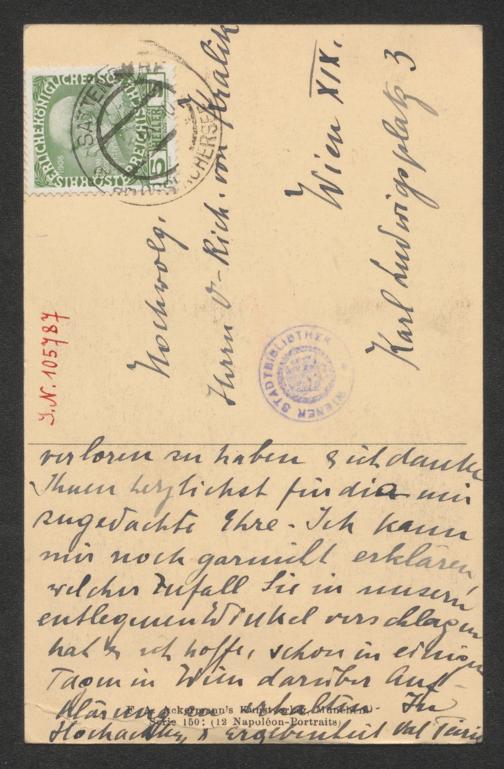 KAISERLICHE KÖNIGLICHE ÖSTERREICHISCHE POST
5 HELLER
1908
Hochwolg.
Herrn D- Rich. von Kralik
Wien XIX.
Karl Ludwigsplatz 3
I.N. 105787
WIENER STADTBIBLIOTHEK
verloren zu haben & ich danke
Ihnen herzlichst für die mir
zugedachte Ehre. Ich kann
mir noch garnicht erklären
welcher Zufall Sie in unsern
entlegenen Winkel verschlagen
hat & ich hoffe, schon in einigen
Tagen in Wien darüber Auf-
klärung zu erhalten. In
Hochachtung & Ergebenheit
F. A. Ackermann's Kunstverlag, München.
Serie 150: (12 Napoléon-Portraits)